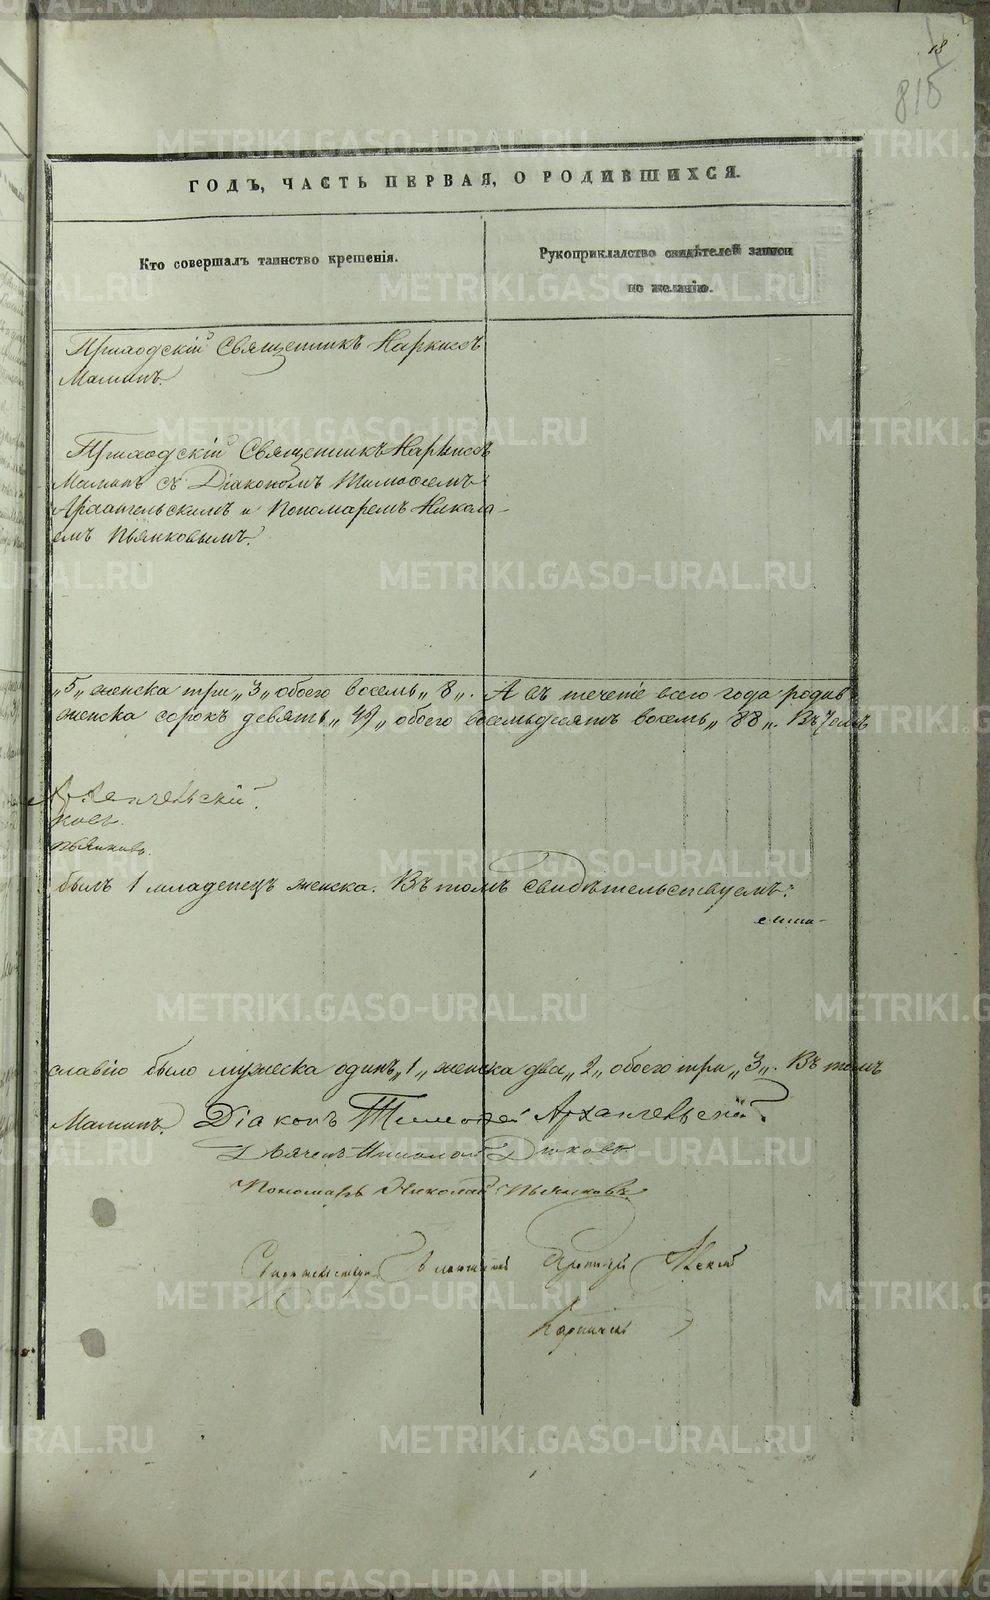 18
815
ГОДЪ, ЧАСТЬ ПЕРВАЯ, О РОДИВШИХСЯ.
Кто совершалъ таинство крещенія.
Рукоприкладство свидѣтелей записи
по желанію.
Приходскій Священникъ Наркисъ
Маминъ.
Приходскій Священникъ Наркисъ
Маминъ съ Діакономъ Тимофеемъ
Архангельскимъ и Пономаремъ Никола-
емъ Пьянковымъ.
„5„ женска три „3„ обоего восемь „8„. А въ теченіе всего года родив
женска сорокъ девять „49„ обоего восемьдесятъ восемь „88„. Въ чемъ
Архангельскій.
ковъ.
Пьянковъ.
былъ 1 младенецъ женска. Въ томъ свидѣтельствуемъ:
славію было мужеска одинъ „1„ женска два „2„ обоего три „3„. Въ томъ
Маминъ. Діаконъ Тимофей Архангельскій.
Дьячекъ Николай Дюковъ
Пономарь Николай Пьянковъ
METRIKI.GASO-URAL.RU